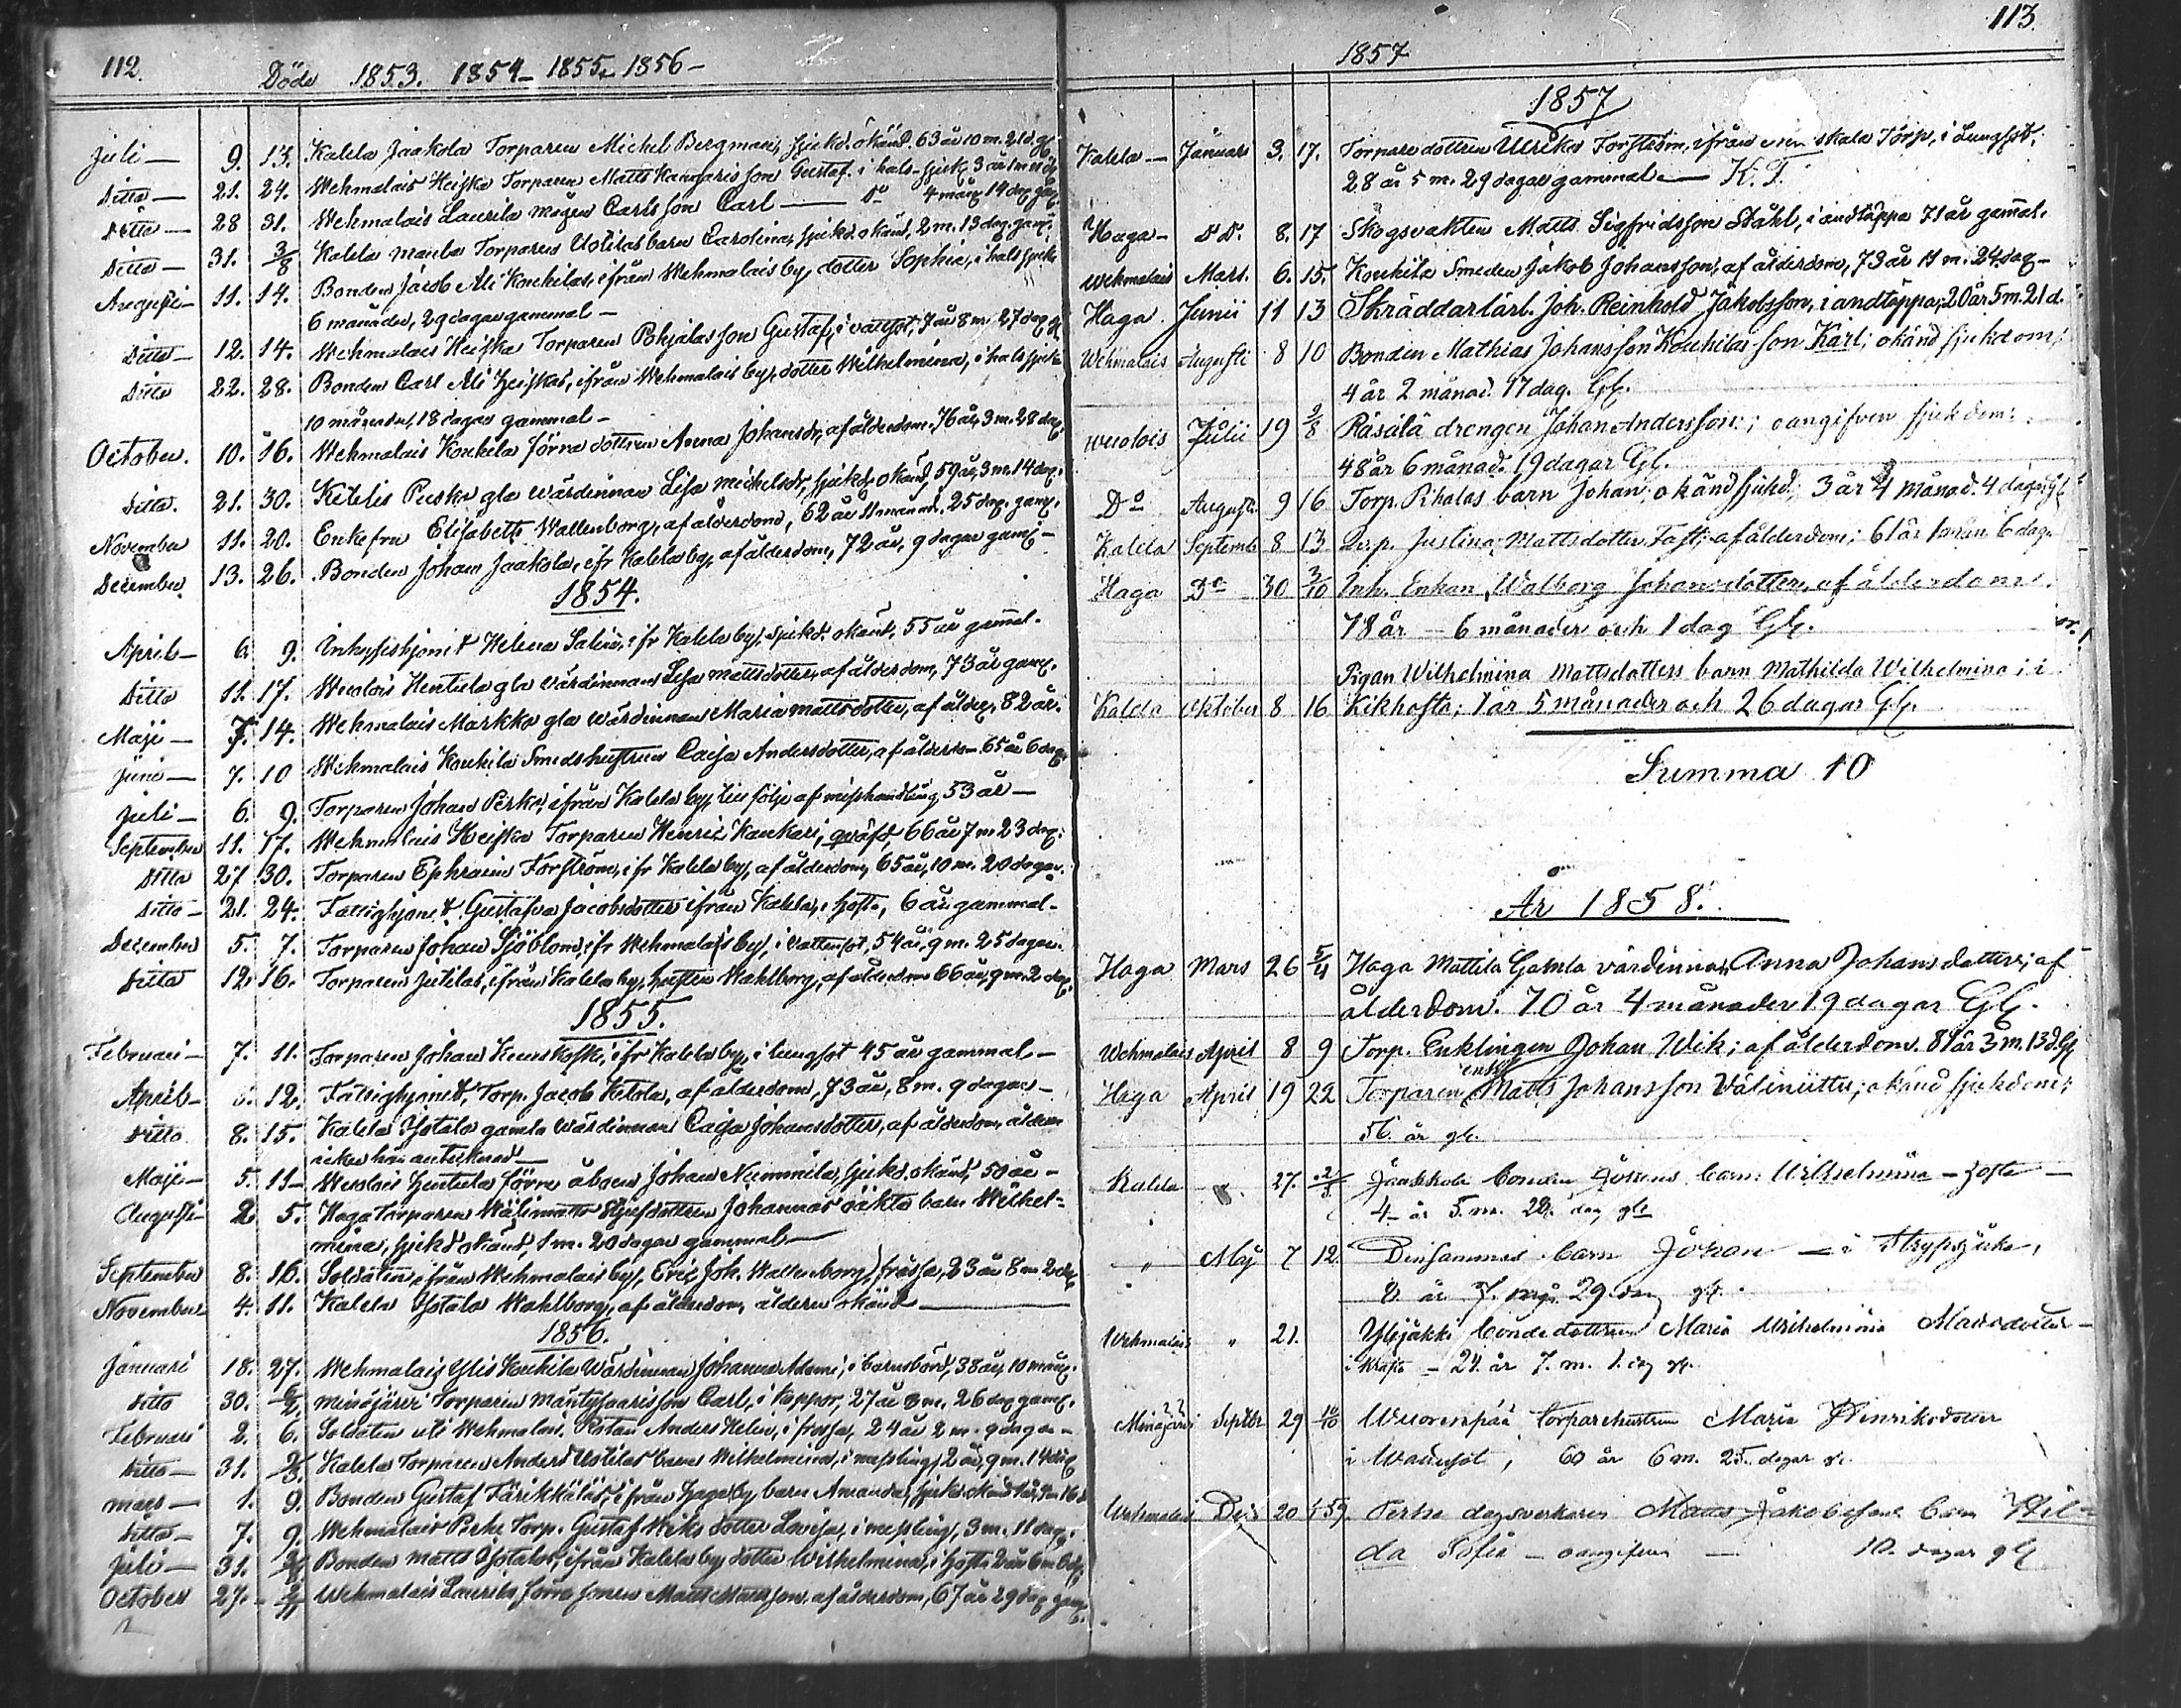 112.
Döde 1853. 1854 – 1855, 1856 –
Juli — 9. 13. Kalela Jaakola Torparen Michel Bergman, sjukd. okänd. 63 år 10 m. 21 dg.
Ditto — 21. 24. Wehmalais Heiska Torparen Matts Kangaris son Gustaf i hals-sjuk. 3 år 1 m.
Ditto — 28 31. Wehmalais Laurila mågen Carls son Carl — Do 4 mån. 14 dag. gam.
Ditto — 31. 3/8 Kalela Torparen Uotilas barn Carolina, sjukd. okänd, 2 m. 13 dag. gam.
Augusti — 11. 14. Bonden Jacob Ali Koukilas, ifrån Wehmalais by, dotter Sophia, i halssjuka
6 månader, 29 dagar gammal —
Ditto — 12. 14. Wehmalais Heiska Torparen Pohjalas son Gustaf, i vattsot, 7 år 8 m. 27 dag.
Ditto 22. 28. Bonden Carl Ali Heiskas, ifrån Wehmalais by, dotter Wilhelmina, i halssjuka
10 månader, 18 dagar gammal —
October. 10. 16. Wehmalais Koukila förra dottren Anna Johansdr, af ålderdom, 76 år, 3 m. 28 dag.
Ditto. 21. 30. Kiilis Puska gla wärdinnan Lisa Michelsdr, sjukd. okänd, 59 år, 3 m. 14 dag.
November 11. 20. Enkefru Elisabeth Wallenborg, af ålderdom, 62 år 11 månad. 25 dag. gam.
December 13. 26. Bonden Johan Jaakola, ifr Kalela by, af ålderdom, 72 år, 9 dagar gam. —
1854.
April — 6. 9. Inhysehjonet Helena Salin, ifr Kalela by, sjukd. okänd, 55 år gamal.
Ditto 11. 17. Wuolois Hentula gla wärdinnan Lisa Mattsdotter, af ålderdom, 73 år gam.
Maji — 7. 14. Wehmalais Markka gla wärdinnan Maria Mattsdotter, af ålder, 82 år.
Juni — 7. 10 Wehmalais Koukila Smedshustrun Caisa Andersdotter, af ålderdom 65 år 6 dag.
Juli — 6. 9. Torparen Johan Perko, ifrån Kalela by, till följe af misshandling 53 år —
September 11. 17. Wehmalais Heiska Torparen Henric Kankari, qväfd, 66 år 7 m 23 dag.
Ditto 27 30. Torparen Ephraim Forström, ifr Kalela by, af ålderdom, 65 år, 10 m. 20 dagar.
Ditto — 21. 24. Fattighjonet Gustafva Jacobsdotter ifrån Kalela, i hosta, 6 år gammal —
December 5. 7. Torparen Johan Sjöblom, ifr Wehmalais by, i vattensot, 54 år, 9 m. 25 dagar.
Ditto 12. 16. Torparen Jutilas, ifrån Kalela by, hustru Wahlborg, af ålderdom 66 år, 9 m. 2 dag.
1855.
Februari — 7. 11. Torparen Johan Kuuskoski, ifr Kalela by, i lungsot 45 år gammal —
April — 12. Fattighjonet, Torp. Jacob Ketola, af ålderdom, 73 år, 8 m. 9 dagar —
Ditto 8. 15. Kalela Ylotalo gamla wärdinnan Caja Johansdotter, af ålderdom, åldern
icke här antecknad —
Maji — 5. 11 — Wuolois Hentula förre åboen Johan Nummila, sjukd. okänd, 50 år —
Augusti — 2. 5. Haga Torparen Wälimaa Johannas oäkta barn Wilhel-
mina, sjukd. okänd, 1 m. 20 dagar gammal —
September 8. 16. Soldaten ifrån Wehmalais by, Eric Joh. Wallenborg, frossa, 23 år 8 m 2 dag.
November 4. 11. Kalela Ylotalo Wahlborg, af ålderdom, åldern okänd —
1856.
Januari 18. 27. Wehmalais Ylis Koukila Wärdinnan Johanna Adami, i barnsbörd, 38 år, 10 mån.
Ditto 30. Minojärvi Torparen Mäntysaaris son Carl, i koppor, 27 år 8 m. 26 dag gam.
Februari 2. 6. Soldaten uti Wehmalais Rotan Anders Helin, i frossa, 24 år 2 m. 9 dagar —
Ditto — 31. Kalela Torparen Anders Uotilas barn Wilhelmina, i messling, 2 år, 9 m. 14 dag.
Mars — 1. 9. Bonden Gustaf Färikkäläs, ifrån Haga by barn Amanda, sjukd. okänd
Ditto — 7. 9. Wehmalais Perko Torp. Gustaf Wiks dotter Lovisa, i messling, 3 m. 11 dag.
Juli — 31. Bonden Matts Ylotalos, ifrån Kalela by dotter Wilhelmina, i hosta 2 år 6 m
October 27. 2/11 Wehmalais Laurila förra sonen Matts Mattsson, af ålderdom, 67 år 29 dag. gam.
113.
1857
1857
Kalela — Januari 3. 17. Torpare dottren Ulrika Forström, ifrån skala Torp, i Lungsot,
28 år 5 m. 29 dagar gammal — K. T.
Haga — Do. 8. 17 Skogsvakten Matts Sigfridsson Ståhl, i andtäppa 71 år gamal.
Wehmalais Mars. 6. 15. Koukila Smeden Jakob Johansson, af ålderdom, 73 år 11 m. 24 dag —
Haga. Junii 11 13 Skräddarlärl. Joh. Reinhold Jakobsson, i andtäppa, 20 år 5 m. 21 d.
Wehmalais Augusti 8 10 Bonden Mathias Johansson Koukilas son Karl; okänd sjukdom;
4 år 2 månad. 17 dag. Gl.
Wuolois Julii 19 2/8 Räsälä drengen Johan Andersson; oangifven sjukdom:
48 år 6 månad. 19 dagar Gl.
Do Augusti 9 16 Torp. Pihalas barn Johan; okänd sjukd. 3 år 4 månad. 4 dagar Gl
Kalela Septemb 8 13 Justina Mattsdotter Fast; af ålderdom; 61 år 1 mån 6 dag.
Haga Do 30 3/10 Inh. Enkan Walborg Johansdotter, af ålderdom.
78 år — 6 månader och 1 dag Gl.
Pigan Wilhelmina Mattsdotters barn Mathilda Wilhelmina; i
Kalela Oktober 8 16 Kikhosta; 1 år 5 månader och 26 dagar Gl.
Summa 10
År 1858.
Haga Mars 26 5/4 Haga Mattila Gamla värdinnan Anna Johansdotter; af
ålderdom. 70 år 4 månader 19 dagar Gl.
Wehmalais April 8 9 Torp. Enklingen Johan Wik; af ålderdom. 81 år 3 m. 13 d. Gl
Haga April 19 22 Torparen Matts Johansson Väliniittu; okänd sjukdom;
56. år gl.
Kalela 27. 2/5 Jaakkola bonden barn: Wilhelmina — hosta —
4 år 5. m. 28. dag gl
" Maj 7 12 Densammas barn Johan — i Strypsjuka,
8 år 7. mån. 29. dag gl.
Wehmalais " 21. Ylijäkki bondedottren Maria Wilhelmina Matsdotter —
24. år 7. m. 1. dag gl.
Minojärvi Septbr 29 10/10 Wuorenpää torparehustrun Maria Henriksdotter
i Wattusot, 60 år 6 m. 25. dagar gl.
Wehmalais Dec 20 Perko dagsverkaren Jakobssons barn Hil-
da Sofia — oangifven — 10. dagar gl